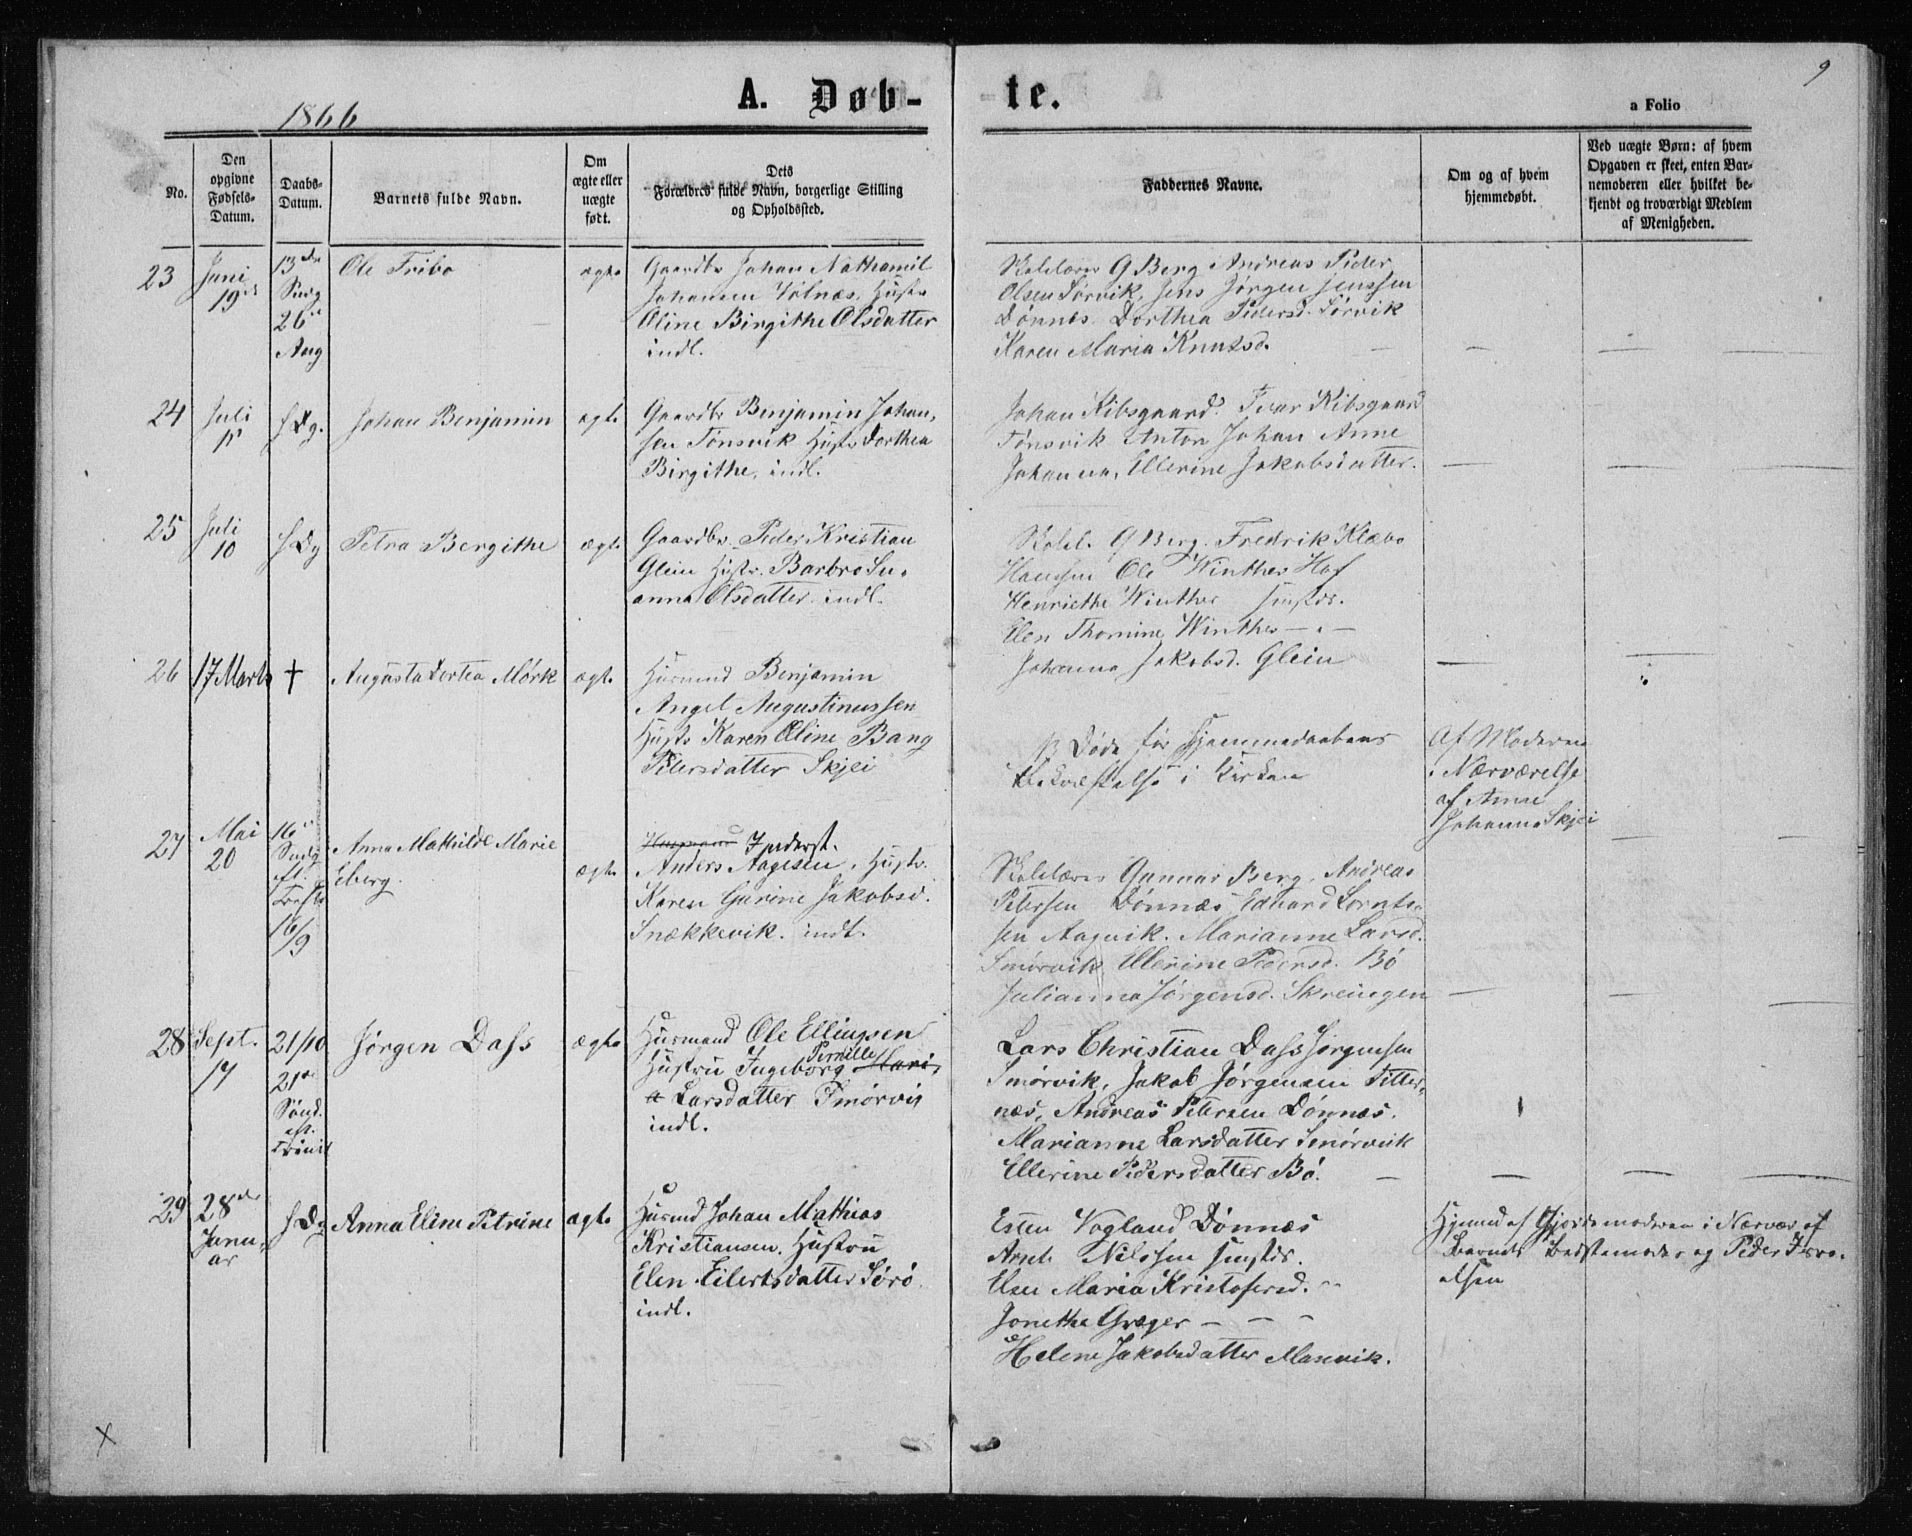 9
A. Døb-
te.
1866
a Folio
No.
Den
opgivne
Fødsels-
Datum.
Daabs-
Datum.
Barnets fulde Navn.
Om
ægte eller
uægte
født.
Dets
Forældres fulde Navn, borgerlige Stilling
og Opholdssted.
Faddernes Navne.
Om og af hvem
hjemmedøbt.
Ved uægte Børn: af hvem
Opgaven er skeet, enten Bar-
nemoderen eller hvilket be-
kjendt og troværdigt Medlem
af Menigheden.
23
Juni
19de
13de
Sndg
26de
Aug
Ole Tribo
ægte
Gaardbr Johan Nathanil
Johansen Hustr
Oline Birgithe Olsdatter
indl.
Skolelærer G Berg Andreas Peder
Olsen Sørvik, Jens Jørgen Jenssen
Dønnes. Dorthea Pedersd. Sørvik
Karen Maria Knutsd.
24
Juli
s Dg.
Johan Benjamin
ægte
Gaardbr Benjamin Johan,
sen Tønsvik Hustr Dorthea
Birgithe, indl.
Johan Ribsgaard. Ivar Ribsgaard
Tønsvik Anton Johan Anne
Johanna, Ellerine Jakobsdatter.
25
Juli
10
s Dg
Petra Bergithe
ægte
Gaardbr. Peder Kristian
Glein Hustr. Barbro Su-
anna Olsdatter indl.
Skolel. G Berg. Fredrik Klæbo
Hansen Ole Winther Hof
Henriethe Winther smstds.
Elen Thomine Winther — " —
Johanna Jakobsd. Glein
26
17 Marts
†
Augusta Dortea Mørk
ægte
Husmnd Benjamin
Angel Augustinussen
Hustr Karen Oline Bang
Petersdatter Skjei
Døde før Hjemmedaabens
Bekræftelse i Kirken
Af Moderen
i Nærværelse
af Anne
Johanna Skjei
27
Mai
20
16de
Sndg
eft.
Trefts
16/9
Anna Mathilde Marie
Eberg.
ægte
Husmand Inderst.
Anders Aagesen, Hustr.
Karen Gurine Jakobsd.
Snækkevik. indl.
Skolelærer Gunnar Berg, Andreas
Petersen Dønnæs Edvard Lornts-
sen Aagvik. Marianne Larsd.
Smørvik Ellerine Pedersd. Bø
Julianna Jørgensd. Skreingen
28
Sept.
17
21/10
21de
Sønd.
eft.
Trinit
Jørgen Dass
ægte
Husmand Ole Ellingsen
Hustru Ingeborg Pernille Mari,
a Larsdatter Smørvik
indl.
Lars Christian Dass Jørgensen
Smørvik, Jakob Jørgensen Titter,
næs, Andreas Petersen Dønnæs.
Marianne Larsdatter Smørvik
Ellerine Pedersdatter Bø.
29
28de
Janu,
ar
s Dg
Anna Eline Petrine
ægte
Husmd Johan Mathias
Kristiansen, Hustru
Elen Eilertsdatter Sørø
indl.
Esten Vogland Dønnæs
Arnt Nilssen smstds.
Elsen Maria Kristofersd. "
Jonetha Græger — " —
Helene Jakobsdatter Masvik.
Hjemmd af Gjordemoderen i Nærvær af
Barnets Bedstemoder og Peder Isra-
elsen